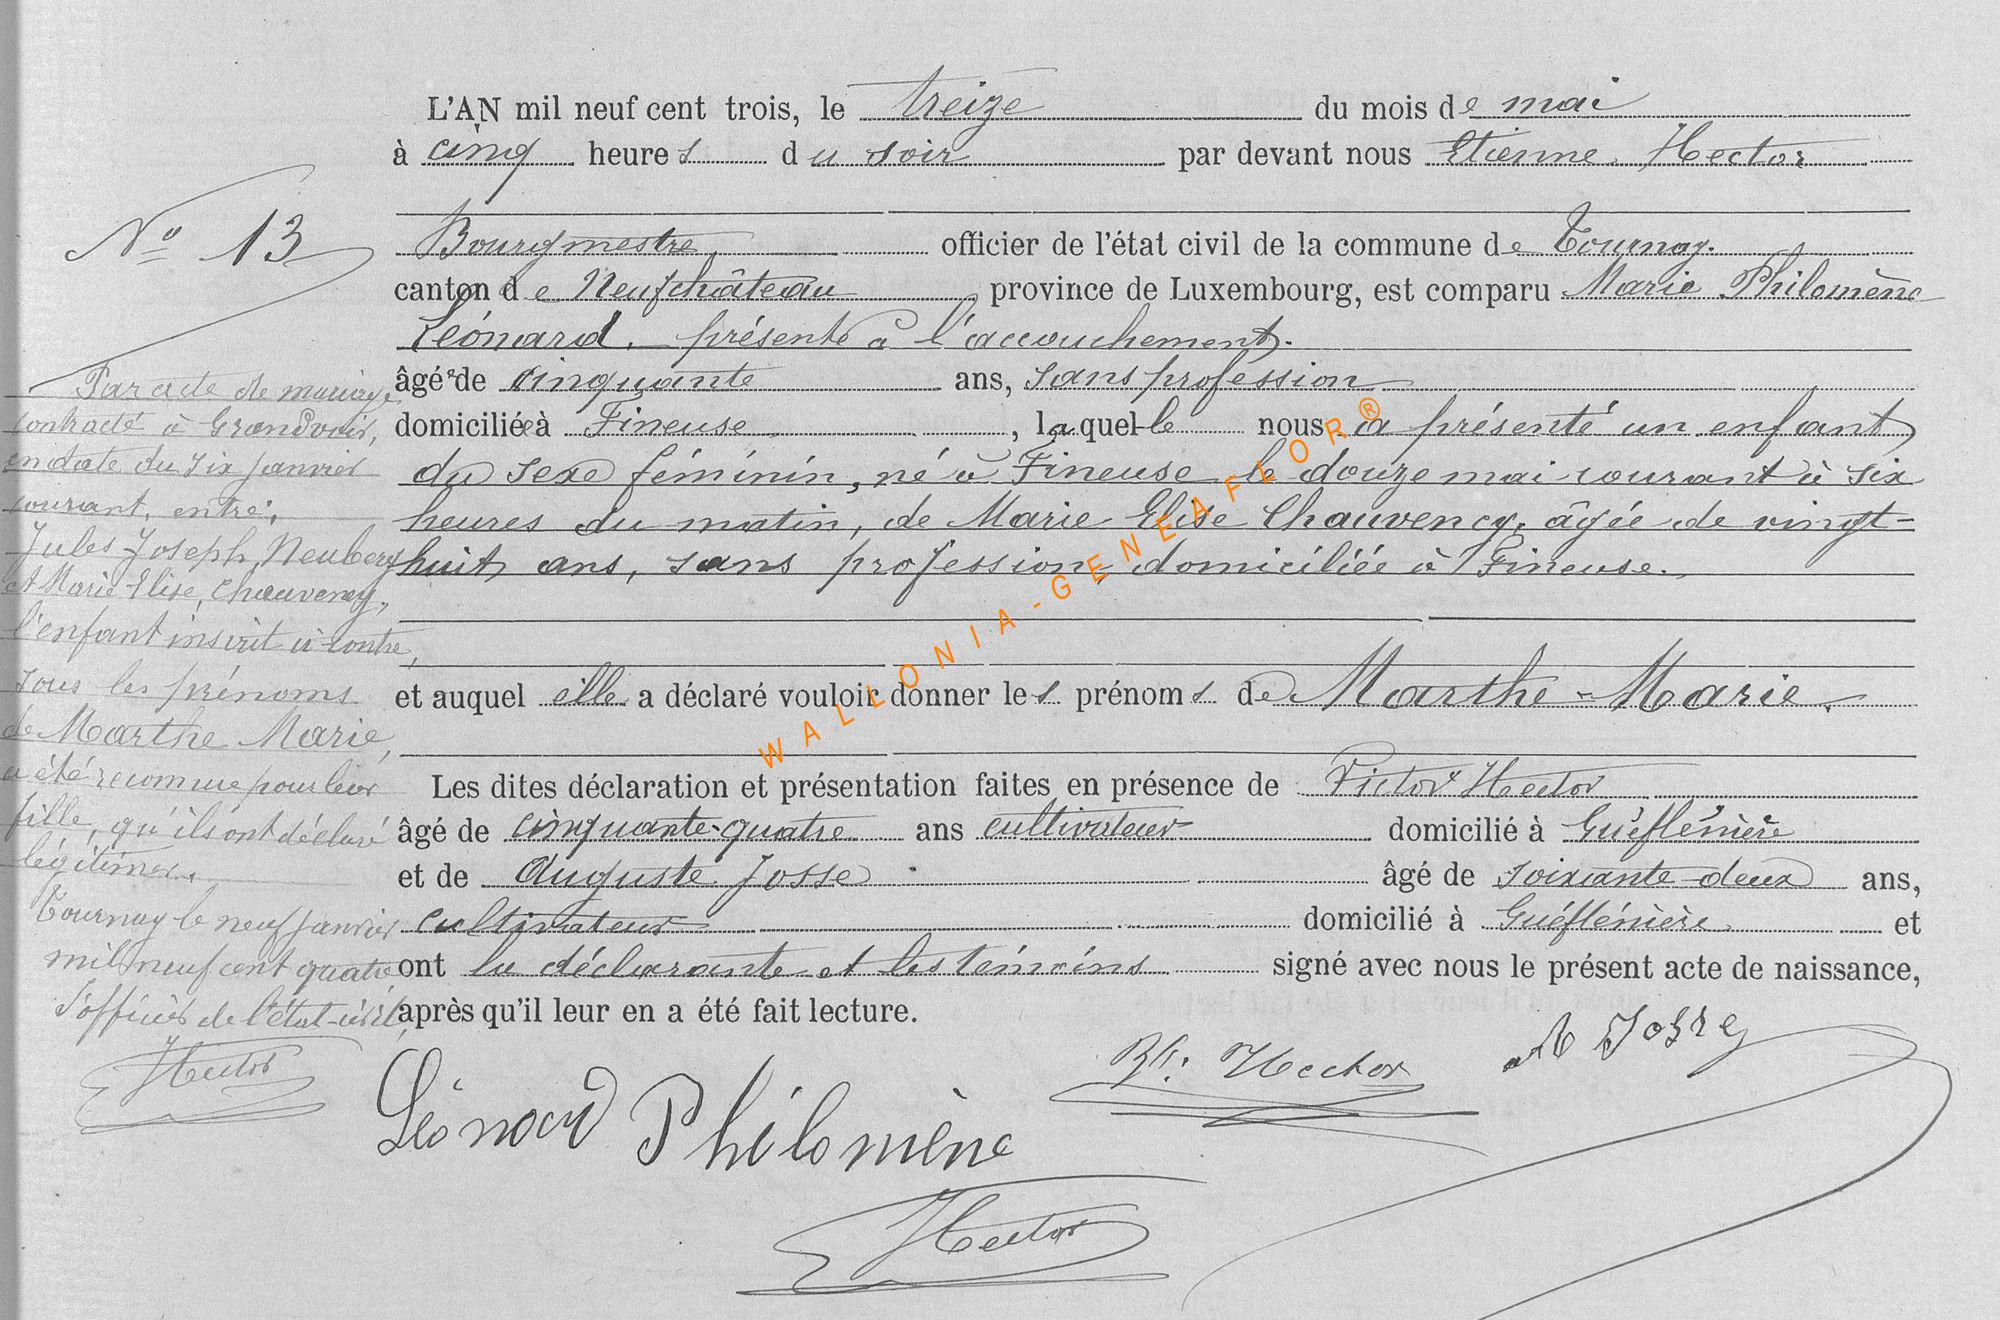 L'AN mil neuf cent trois, le treize du mois de mai
à cinq heures du soir par devant nous Etienne Hector
Bourgmestre officier de l'état civil de la commune de Tournay.
canton de Neufchâteau, province de Luxembourg, est comparu Marie Philomène
Léonard, présente à l'accouchement.
âgée de cinquante ans, sans profession
domiciliée à Fineuse, laquelle nous a présenté un enfant
du sexe féminin, né à Fineuse le douze mai courant à six
heures du matin, de Marie Elise Chauvency, âgée de vingt-
huit ans, sans profession, domiciliée à Fineuse.
et auquel elle a déclaré vouloir donner les prénoms de Marthe-Marie.
Les dites déclaration et présentation faites en présence de Victor Hector
âgé de cinquante-quatre ans cultivateur domicilié à Guéflénière
et de Auguste Josse âgé de soixante-deux ans,
cultivateur domicilié à Guéflénière et
ont la déclarante et les témoins signé avec nous le présent acte de naissance,
après qu'il leur en a été fait lecture.
Léonard Philomène
Hector
A Josse
Hector
No 13
Par acte de mariage
contracté à Grandvoir,
en date du six janvier
courant, entre:
Jules Joseph, Neuberg
et Marie-Elise, Chauvency,
l'enfant inscrit ci-contre,
sous les prénoms
de Marthe Marie,
a été reconnue pour leur
fille, qu'ils ont déclaré
légitimer.
Tournay le neuf janvier
mil neuf cent quatre
L'officier de l'état-civil,
Hector
WALLONIA-GENEAFLOR®